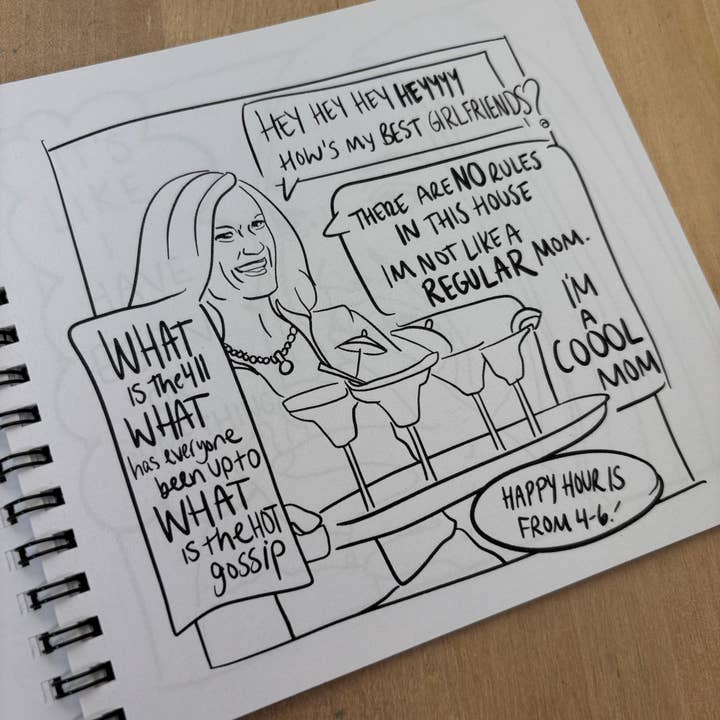 HEY HEY HEY HEYYYY
HOW'S MY BEST GIRLFRIENDS?
THERE ARE NO RULES
IN THIS HOUSE
I'M NOT LIKE A
REGULAR MOM.
I'M
A
COOOL
MOM
WHAT
IS THE 411
WHAT
has everyone
been up to
WHAT
IS the HOT
gossip
HAPPY HOUR IS
FROM 4-6!